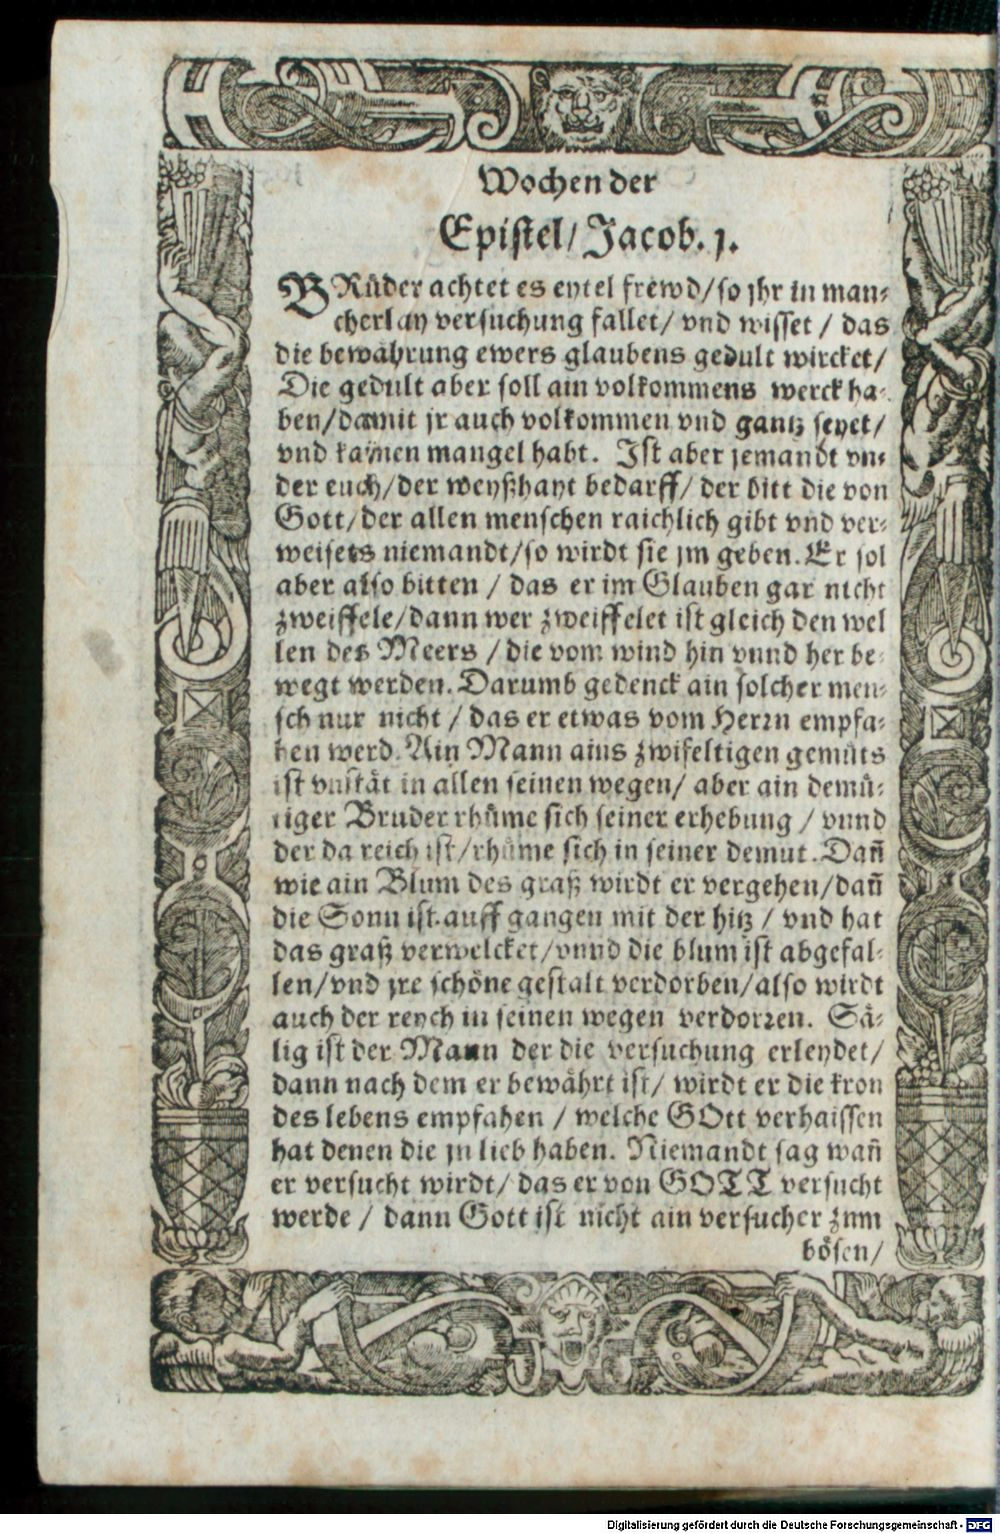 Wochen der
Epistel/ Jacob. j.
BRüder achtet es eytel frewd/ so jhr in man⸗
cherlay versuchung fallet/ vnd wisset / das
die bewährung ewers glaubens gedult wircket/
Die gedult aber soll ain volkommens werck ha⸗
ben/ damit jr auch volkommen vnd gantz seyet/
vnd kaynen mangel habt. Ist aber jemandt vn⸗
der euch/ der weyßhayt bedarff/ der bitt die von
Gott/ der allen menschen raichlich gibt vnd ver⸗
weisets niemandt/ so wirdt sie jm geben. Er sol
aber also bitten / das er im Glauben gar nicht
zweiffele/ dann wer zweiffelet ist gleich den wel
len des Meers / die vom wind hin vnnd her be⸗
wegt werden. Darumb gedenck ain solcher men⸗
sch nur nicht / das er etwas vom Herrn empfa⸗
hen werd. Ain Mann ains zwifeltigen gemüts
ist vnstät in allen seinen wegen/ aber ain demü⸗
tiger Bruder rhüme sich seiner erhebung / vnnd
der da reich ist/ rhüme sich in seiner demut. Dañ
wie ain Blum des graß wirdt er vergehen/ dañ
die Sonn ist auff gangen mit der hitz / vnd hat
das graß verwelcket/ vnnd die blum ist abgefal⸗
len/ vnd jre schöne gestalt verdorben/ also wirdt
auch der reych in seinen wegen verdorren. Sä⸗
lig ist der Mann der die versuchung erleydet/
dann nach dem er bewährt ist/ wirdt er die kron
des lebens empfahen / welche GOtt verhaissen
hat denen die jn lieb haben. Niemandt sag wañ
er versucht wirdt/ das er von GOTT versucht
werde / dann Gott ist nicht ain versucher zum
bösen/
Digitalisierung gefördert durch die Deutsche Forschungsgemeinschaft - DFG